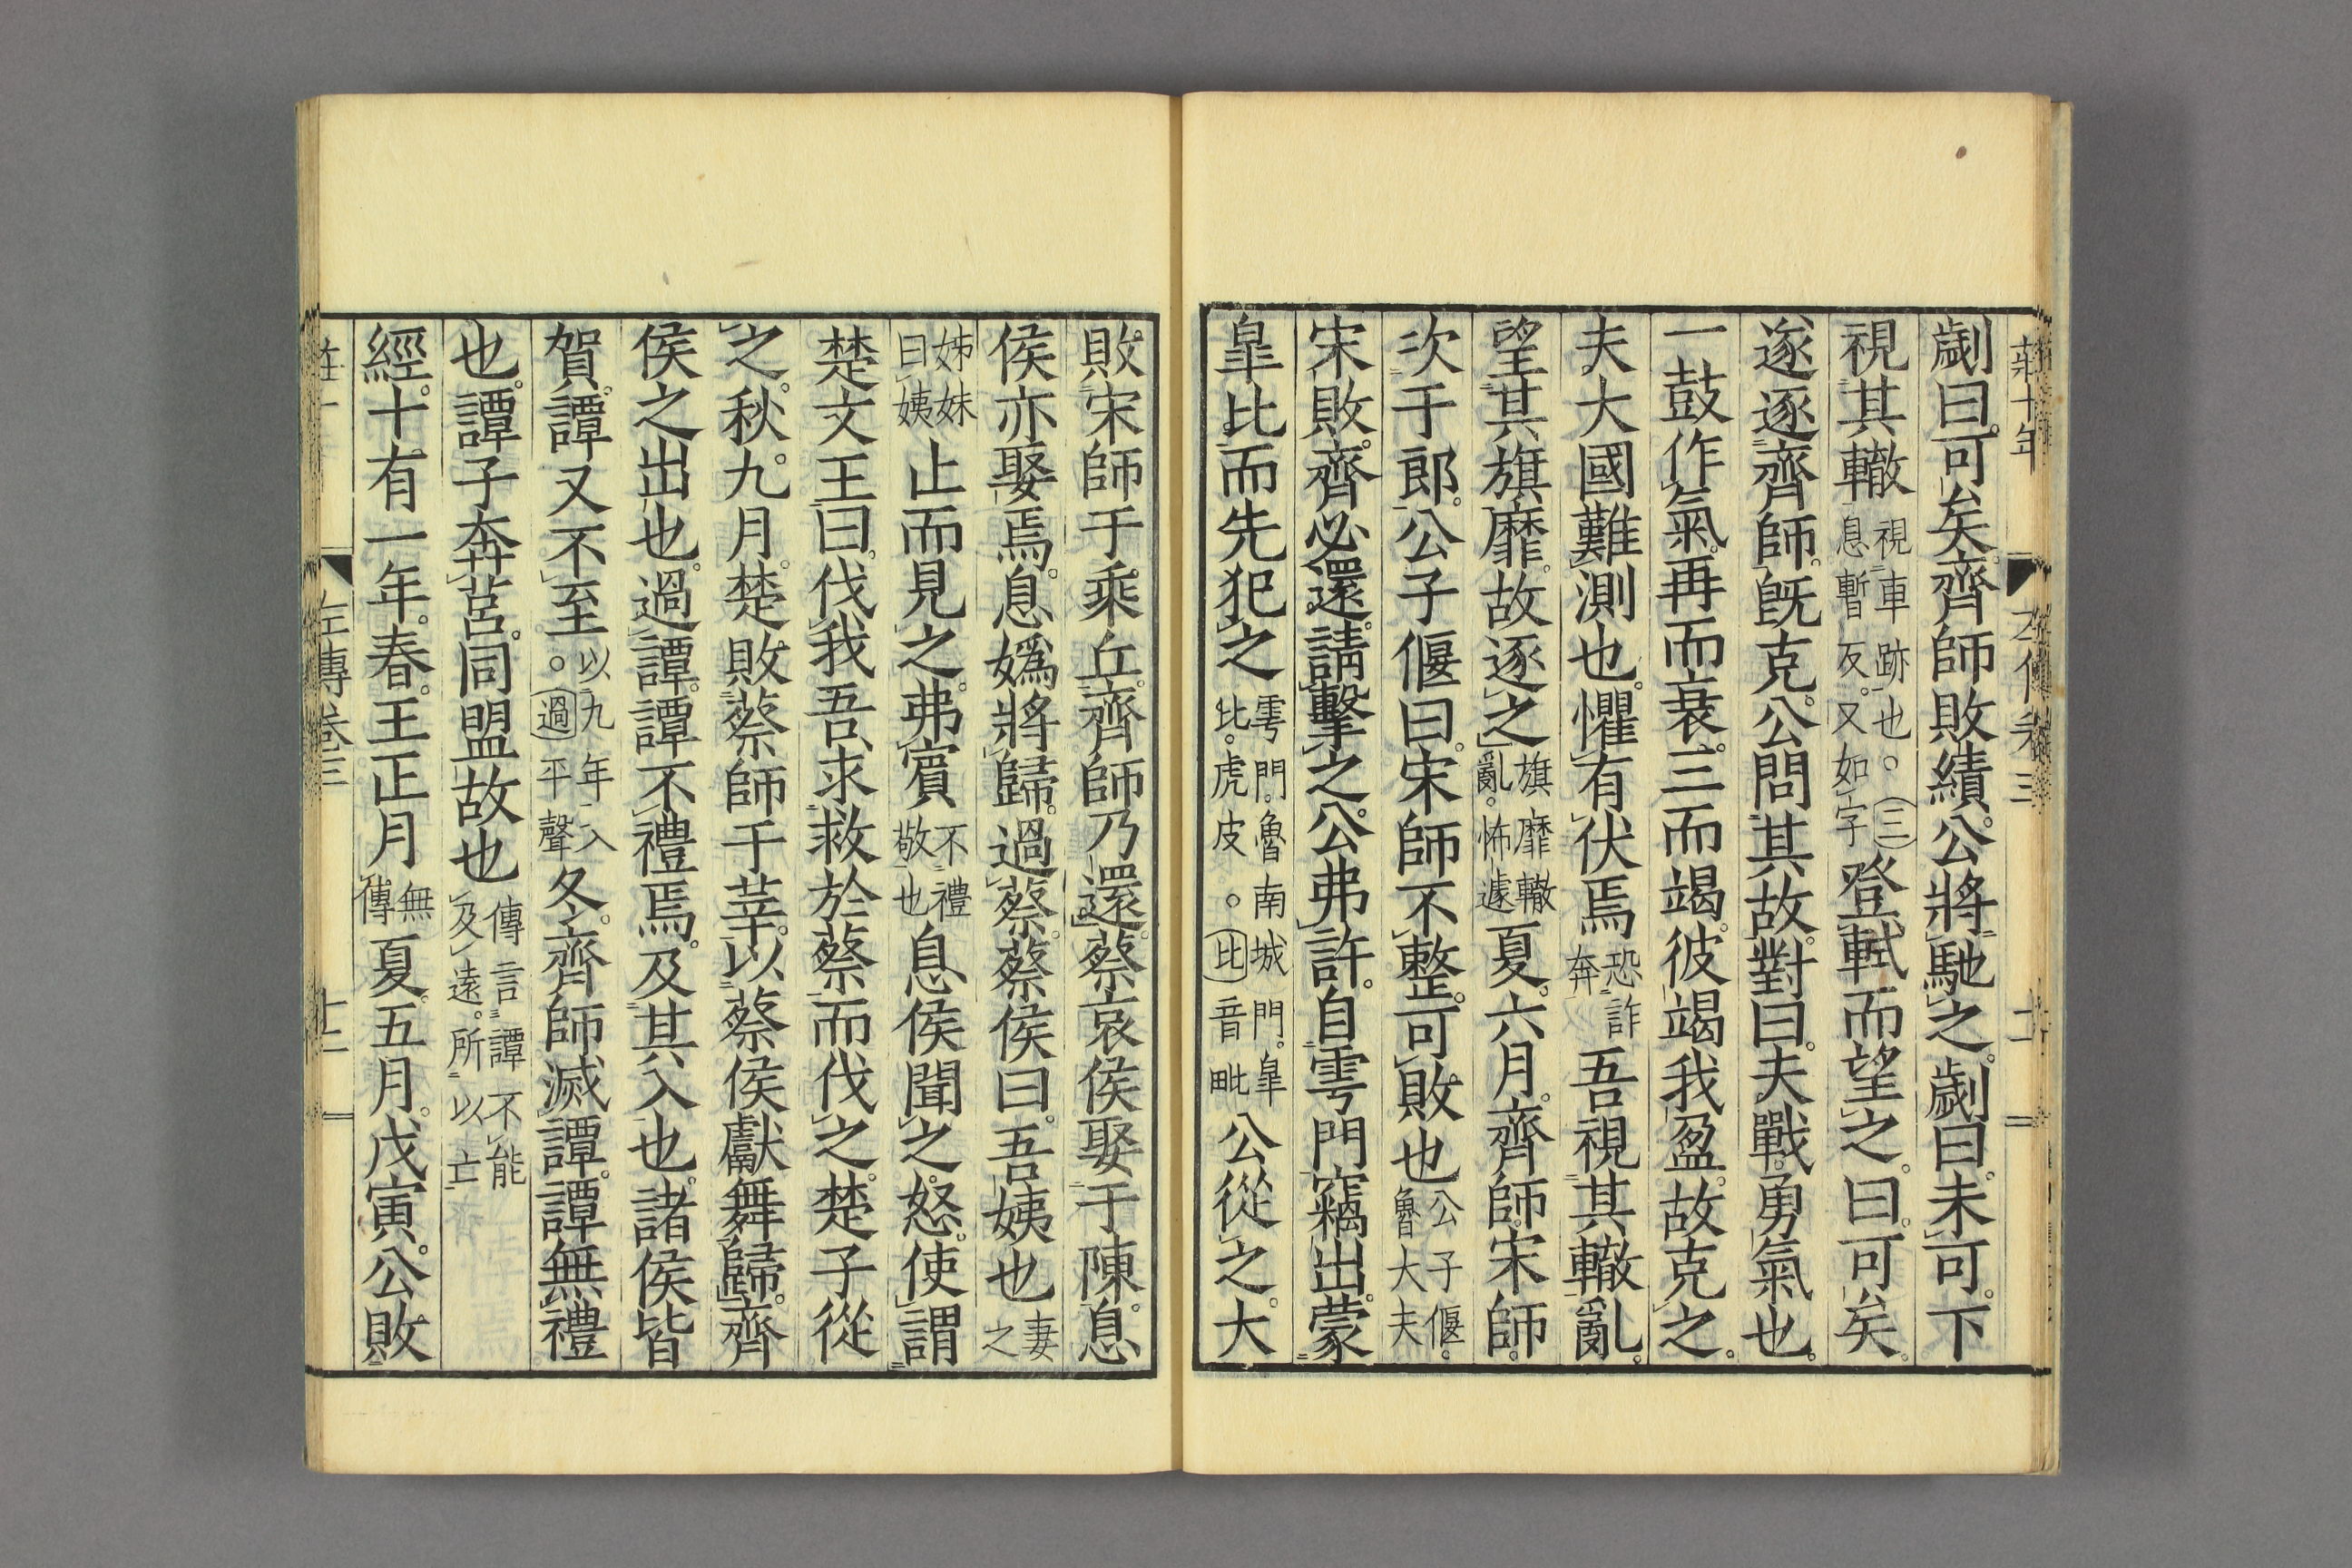 莊十年 左傳卷三 十一
劌曰。可矣。齊師敗績。公將馳之。劌曰。未可。下
視其轍視車跡也。○三息暫反。又如字登軾而望之。曰。可矣。
遂逐齊師。既克。公問其故。對曰。夫戰。勇氣也。
一鼓作氣。再而衰。三而竭。彼竭我盈。故克之。
夫大國難測也。懼有伏焉恐詐奔吾視其轍亂。
望其旗靡。故逐之旗靡轍亂。怖遽夏。六月。齊師。宋師。
次于郎。公子偃曰。宋師不整。可敗也公子偃。魯大夫
宋敗。齊必還。請擊之。公弗許。自雩門竊出。蒙
皐比而先犯之雩門。魯南城門。皐比。虎皮。○比音毗公從之。大
敗宋師于乘丘。齊師乃還。蔡哀侯娶于陳。息
侯亦娶焉。息嬀將歸。過蔡。蔡侯曰。吾姨也妻之
姊妹曰姨止而見之。弗賓不禮敬也息侯聞之。怒。使謂
楚文王曰。伐我。吾求救於蔡而伐之。楚子從
之。秋。九月。楚敗蔡師于莘。以蔡侯獻舞歸。齊
侯之出也。過譚。譚不禮焉。及其入也。諸侯皆
賀。譚又不至以九年入。○過平聲冬。齊師滅譚。譚無禮
也。譚子奔莒。同盟故也傳言譚不能及遠。所以亡
經。十有一年。春。王正月無傳夏。五月。戊寅。公敗
左傳卷三